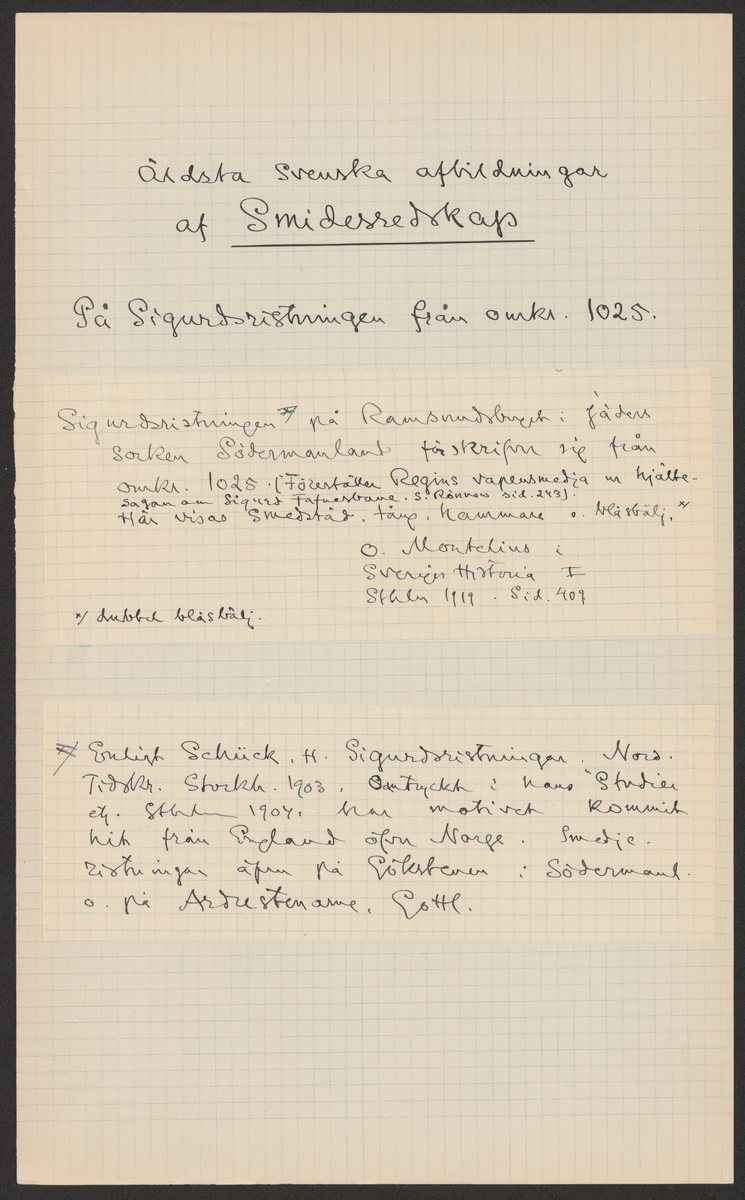 Äldsta Svenska afbildningar
af Smidesredskap
På Sigurdsristningen från omkr. 1025.
Sigurdsristningen x/ på Ramsundsberget i Jäders
socken Södermanland förskrifver sig från
omkr. 1025. [Föreställer Regins vapensmedja ur hjälte-
sagan om Sigurd Fafnesbane. S. Rönnow sid. 243].
Här visas Smedstäd, tång, hammare o. blåsbälj. x/
O. Montelius i
Sveriges Historia I
Sthlm 1919. Sid. 409
x/ dubbel blåsbälj.
x/ Enligt Schück, H. Sigurdsristningar. Nord.
Tidskr. Stockh. 1903. Omtryckt i hans "Studier
etc. Sthlm 1904. har motivet kommit
hit från England öfver Norge. Smedje-
ristningar äfven på Gökstenen i Södermanl.
o. på Ardrestenarne, Gottl.